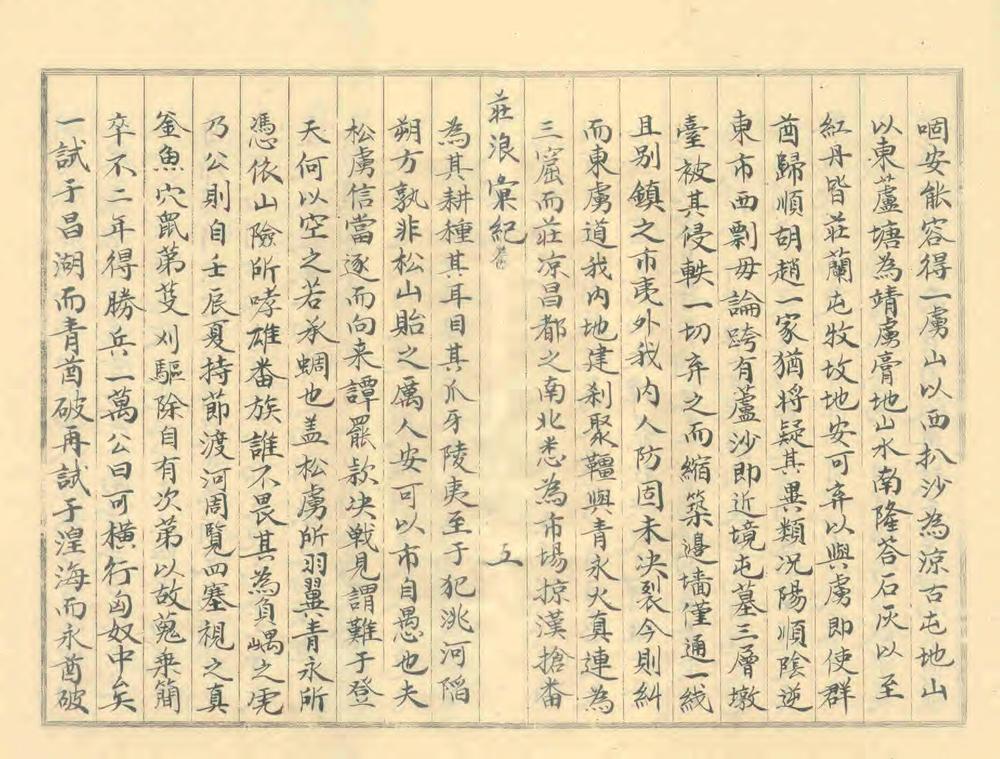 啯安能容得一虜山以西扒沙為涼古屯地山
以東蘆塘為靖虜膏地山水南隆荅石灰以至
紅丹皆莊蘭屯牧坟地安可弃以與虜即使群
酋歸順胡趙一家猶将疑其異類况陽順陰逆
東市西剽毋論跨有蘆沙即近境屯墓三層墩
臺被其侵軼一切弃之而縮築邊墻僅通一线
且别鎮之市夷外我内人防固未决裂今則糾
而東虜道我内地建刹聚韁與青永火真連為
三窟而莊凉昌都之南北悉為市場掠漢搶畨
莊浪彙紀 五
為其耕種其耳目其爪牙陵夷至于犯洮河䧟
朔方孰非松山貽之厲人安可以市自愚也夫
松虜信當逐而向来譚罷欵决戰見謂難于登
天何以空之若承蜩也盖松虜所羽翼青永所
憑依山險所哮雄畨族誰不畏其為負嵎之虎
乃公則自壬辰夏持節渡河周覽四塞視之真
釜魚穴鼠苐芟刈驅除自有次第以故蒐乗簡
卒不二年得勝兵一萬公曰可横行匈奴中矣
一試于昌湖而青酋破再試于湟海而永酋破